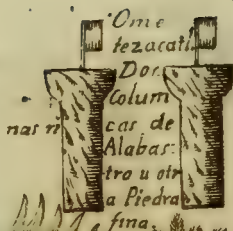 Ome
tezacatl.
Dos
Colum
nas ri
cas de
Alabas:
tro u otr
a Piedra
fina.